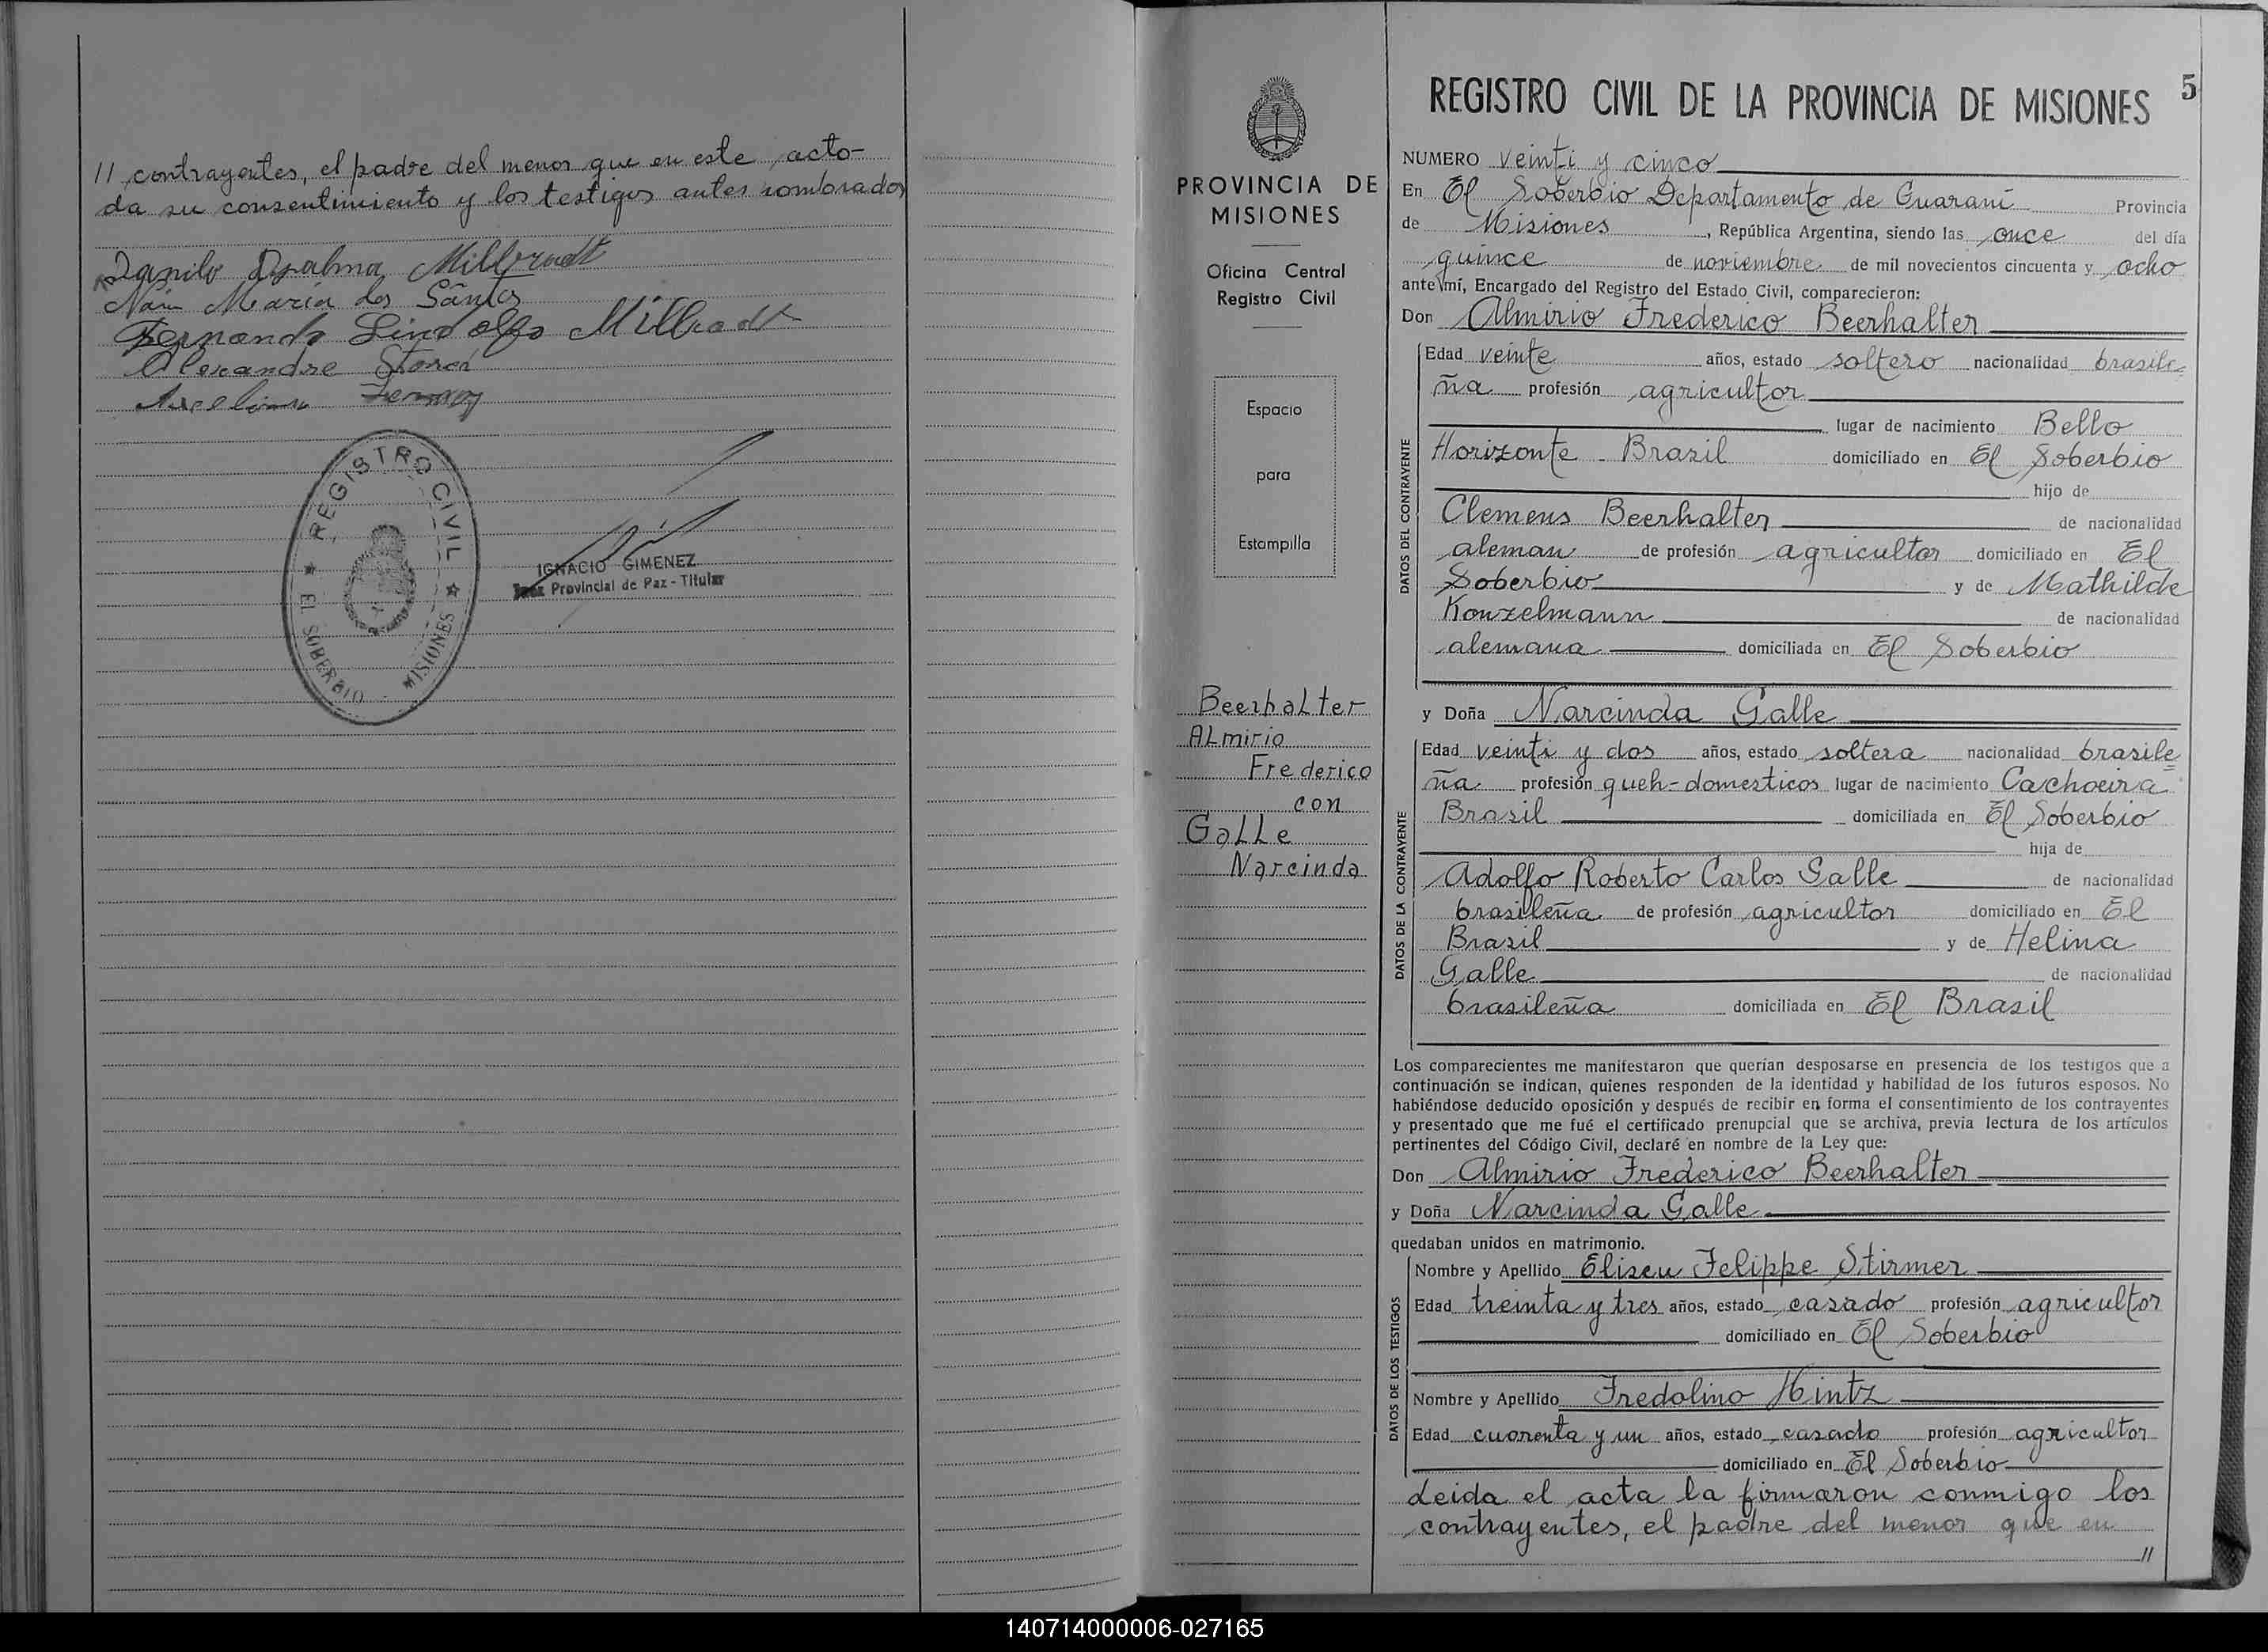 // contrayentes, el padre del menor que en este acto-
da su consentimiento y los testigos antes nombrados
Danilo Djalma Millbradt
María dos Sântos
Fernando Lindolfo Millbradt
Alexandre
REGISTRO CIVIL
EL SOBERBIO MISIONES
IGNACIO GIMENEZ
Juez Provincial de Paz - Titular
PROVINCIA DE
MISIONES
Oficina Central
Registro Civil
Espacio
para
Estampilla
Beerhalter
Almirio
Frederico
con
Galle
Narcinda
5
REGISTRO CIVIL DE LA PROVINCIA DE MISIONES
NUMERO veinti y cinco
En El Soberbio Departamento de Guaraní Provincia
de Misiones, República Argentina, siendo las once del día
quince de noviembre de mil novecientos cincuenta y ocho
ante mí, Encargado del Registro del Estado Civil, comparecieron:
Don Almirio Frederico Beerhalter
DATOS DEL CONTRAYENTE
Edad veinte años, estado soltero nacionalidad brasile
ña profesión agricultor
lugar de nacimiento Bello
Horizonte - Brasil domiciliado en El Soberbio
hijo de
Clemens Beerhalter de nacionalidad
aleman de profesión agricultor domiciliado en El
Soberbio y de Mathilde
Konzelmann de nacionalidad
alemana domiciliada en El Soberbio
y Doña Narcinda Galle
DATOS DE LA CONTRAYENTE
Edad veinti y dos años, estado soltera nacionalidad brasile=
ña profesión queh-domesticos lugar de nacimiento Cachoeira
Brasil domiciliada en El Soberbio
hija de
Adolfo Roberto Carlos Galle de nacionalidad
brasileña de profesión agricultor domiciliado en El
Brasil y de Helina
Galle de nacionalidad
brasileña domiciliada en El Brasil
Los comparecientes me manifestaron que querían desposarse en presencia de los testigos que a
continuación se indican, quienes responden de la identidad y habilidad de los futuros esposos. No
habiéndose deducido oposición y después de recibir en forma el consentimiento de los contrayentes
y presentado que me fué el certificado prenupcial que se archiva, previa lectura de los artículos
pertinentes del Código Civil, declaré en nombre de la Ley que:
Don Almirio Frederico Beerhalter
y Doña Narcinda Galle
quedaban unidos en matrimonio.
DATOS DE LOS TESTIGOS
Nombre y Apellido Eliseu Felippe Stirmer
Edad treinta y tres años, estado casado profesión agricultor
domiciliado en El Soberbio
Nombre y Apellido Fredolino Hintz
Edad cuarenta y un años, estado casado profesión agricultor
domiciliado en El Soberbio
Leida el acta la firmaron conmigo los
contrayentes, el padre del menor que en
//
140714000006-027165